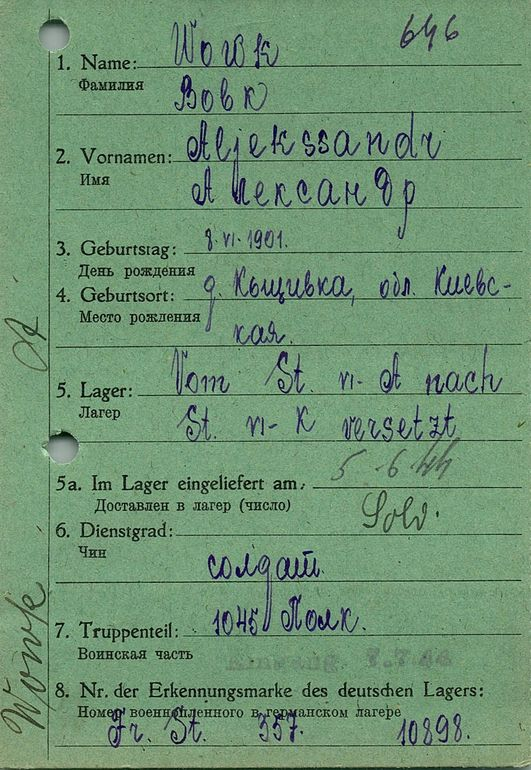 646
1. Name: Wowk
Фамилия
Вовк
2. Vornamen: Aljekssandr
Имя
Александр
3. Geburtstag: 8.VI.1901.
День рождения
4. Geburtsort: д. Кищивка, обл. Киевс-
Место рождения
кая.
5. Lager: Vom St. VI-A nach
Лагерь
St. VI-K versetzt
5a. Im Lager eingeliefert am: 5.6.44
Доставлен в лагерь (число)
Sold.
6. Dienstgrad:
Чин
солдат.
7. Truppenteil: 1045 Полк.
Воинская часть
8. Nr. der Erkennungsmarke des deutschen Lagers:
Номер военнопленного в германском лагере
Fr. St. 357. 10898.
Wowk A